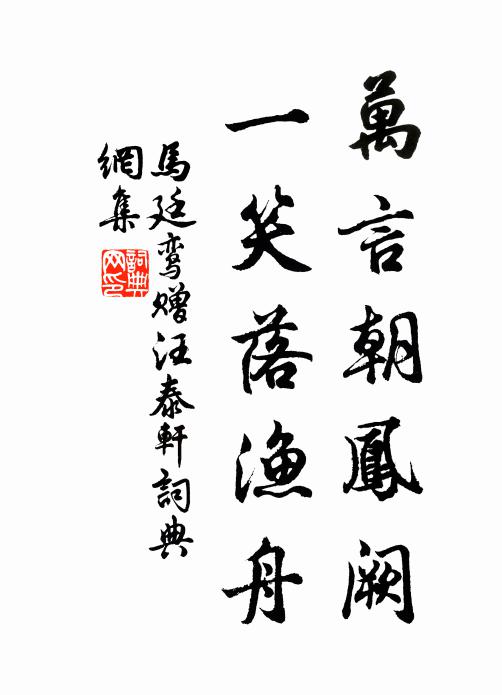 萬言朝鳳闕
一笑落漁舟
馬廷鸾贈汪泰軒詞典
網集
詞典
网印